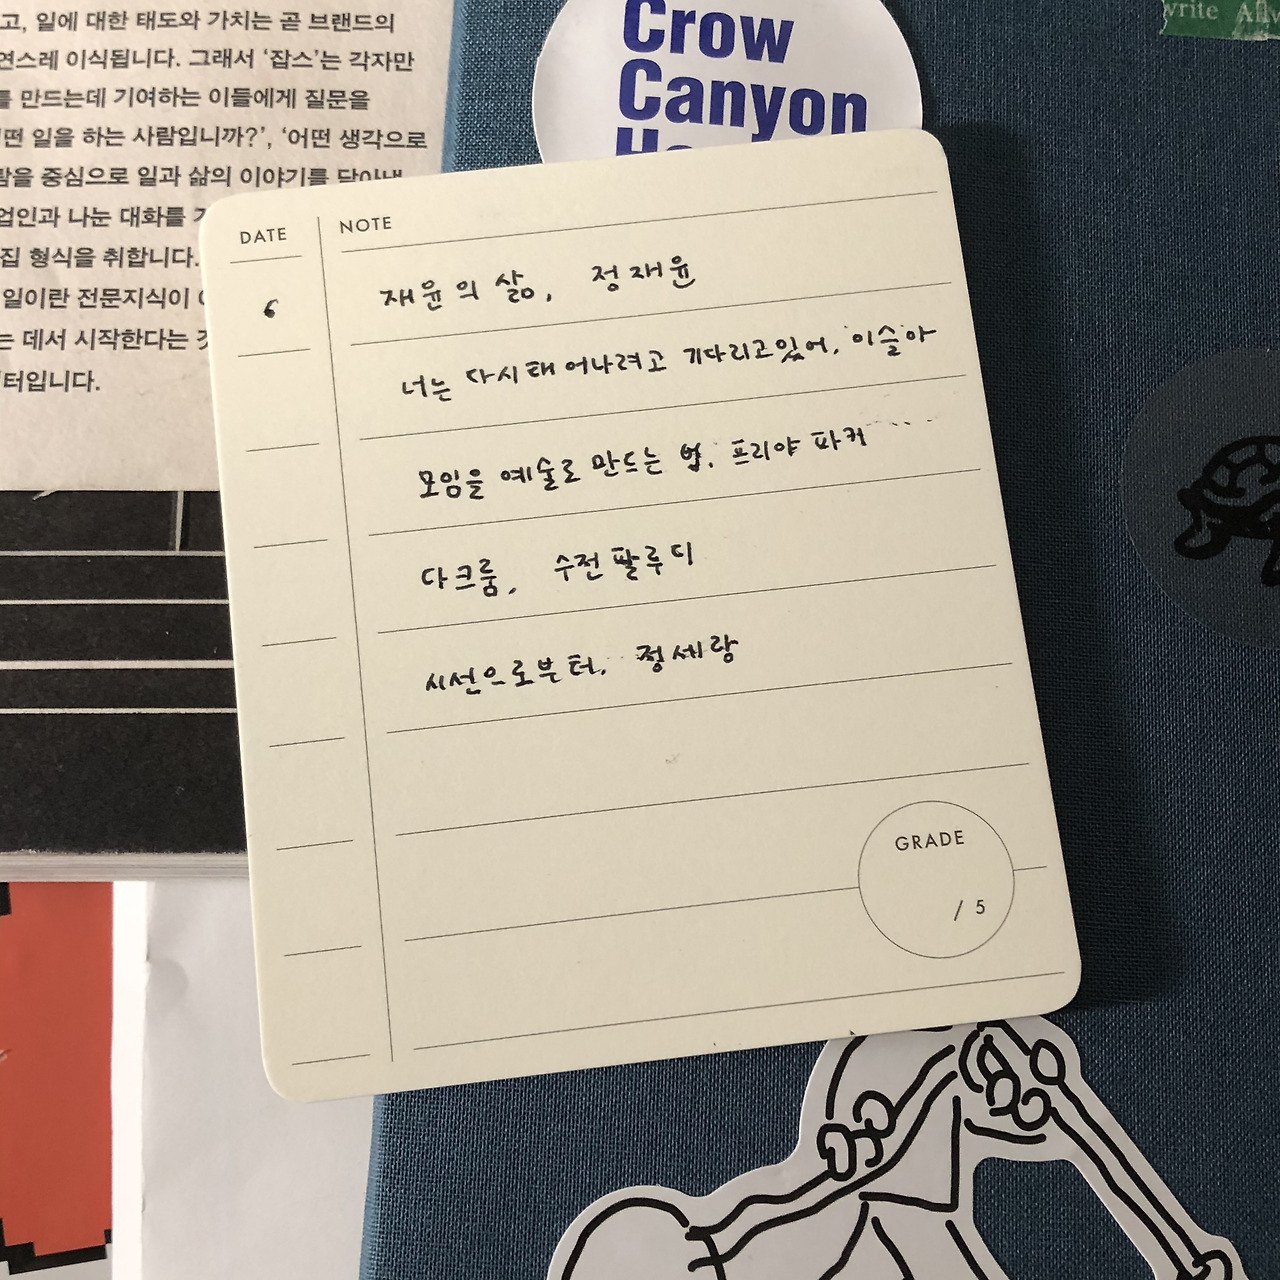 고, 일에 대한 태도와 가치는 곧 브랜드의
연스레 이식됩니다. 그래서 ‘잡스’는 각자만
를 만드는데 기여하는 이들에게 질문을
떤 일을 하는 사람입니까?’, ‘어떤 생각으로
람을 중심으로 일과 삶의 이야기를 담아낸
업인과 나눈 대화를
집 형식을 취합니다.
일이란 전문지식이
는 데서 시작한다는
터입니다.
Crow
Canyon
write
DATE NOTE
6 재윤의 삶, 정재윤
너는 다시 태어나려고 기다리고 있어, 이슬아
모임을 예술로 만드는 법, 프리야 파커
다크룸, 수전 팔루디
시선으로부터, 정세랑
GRADE
/ 5